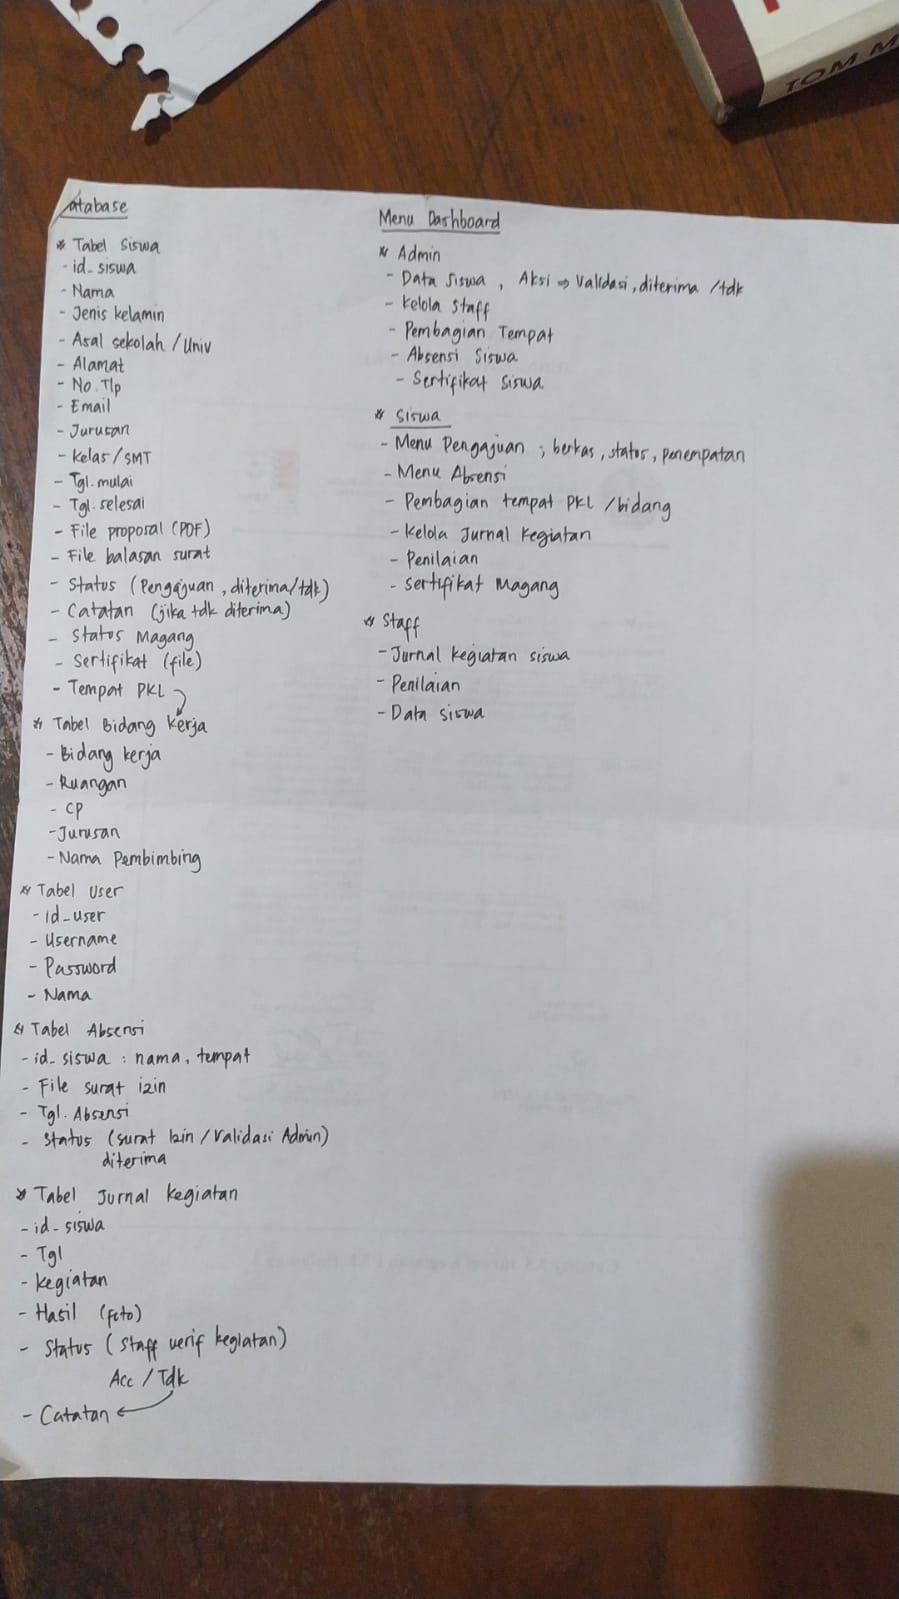 TOM M
atabase
* Tabel Siswa
- id_siswa
- Nama
- Jenis kelamin
- Asal sekolah / Univ
- Alamat
- No. Tlp
- Email
- Jurusan
- Kelas / SMT
- Tgl. mulai
- Tgl. selesai
- File proposal (PDF)
- File balasan surat
- Status (Pengajuan, diterima/tdk)
- Catatan (jika tdk diterima)
- Status Magang
- Sertifikat (file)
- Tempat PKL
* Tabel Bidang Kerja
- Bidang kerja
- Ruangan
- CP
- Jurusan
- Nama Pembimbing
* Tabel User
- id_user
- Username
- Password
- Nama
* Tabel Absensi
- id_siswa : nama, tempat
- File surat izin
- Tgl. Absensi
- Status (surat Izin / Validasi Admin)
diterima
* Tabel Jurnal kegiatan
- id_siswa
- Tgl
- kegiatan
- Hasil (foto)
- Status (Staff verif kegiatan)
Acc / Tdk
- Catatan
Menu Dashboard
* Admin
- Data Siswa, Aksi => Validasi, diterima / tdk
- Kelola Staff
- Pembagian Tempat
- Absensi Siswa
- Sertifikat Siswa
* Siswa
- Menu Pengajuan ; berkas, status, penempatan
- Menu Absensi
- Pembagian tempat PKL / bidang
- Kelola Jurnal Kegiatan
- Penilaian
- Sertifikat Magang
* Staff
- Jurnal kegiatan siswa
- Penilaian
- Data siswa